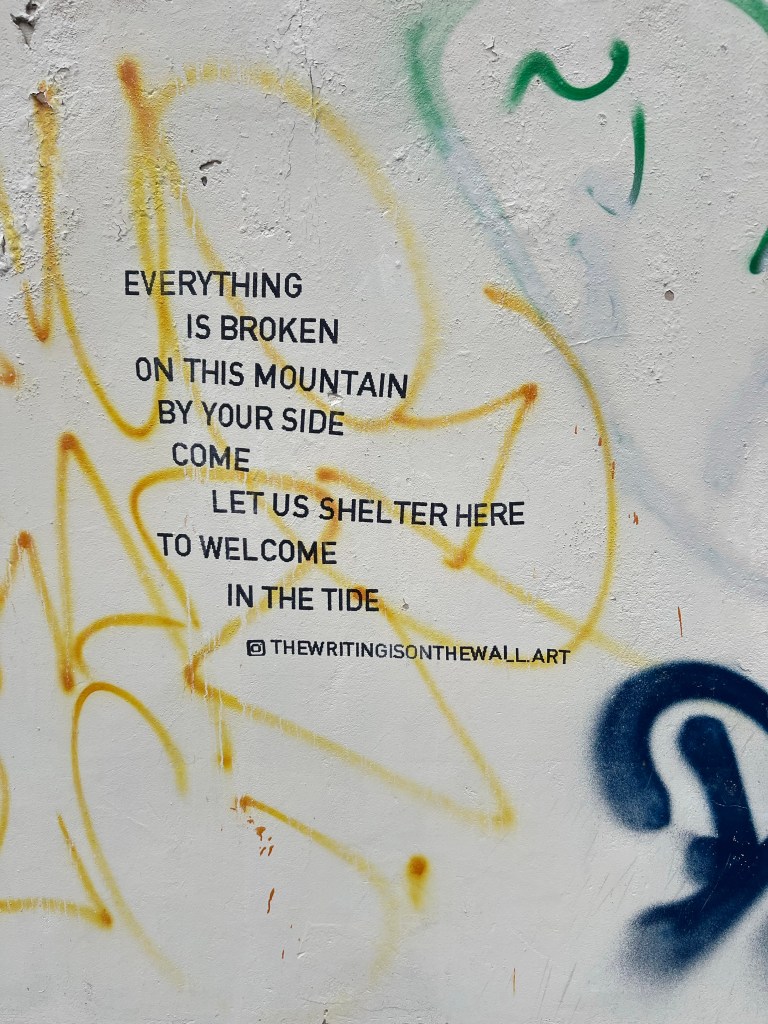 EVERYTHING
IS BROKEN
ON THIS MOUNTAIN
BY YOUR SIDE
COME
LET US SHELTER HERE
TO WELCOME
IN THE TIDE
THEWRITINGISONTHEWALL.ART